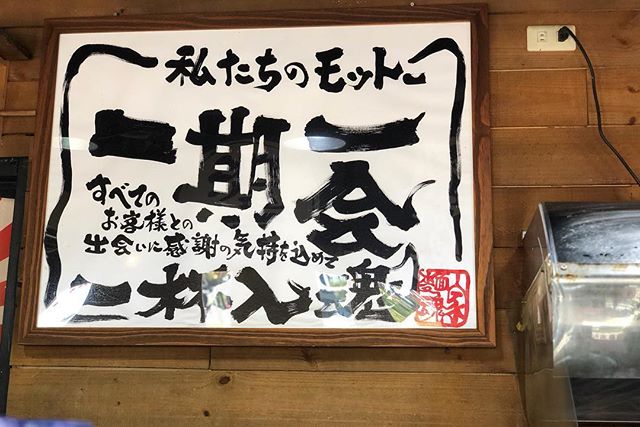 私たちのモットー
一期一会
すべての
お客様との
出会いに感謝の気持を込めて
一杯入魂